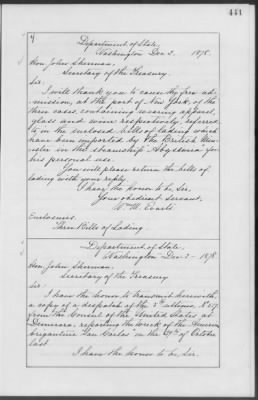 441
Department of State,
Washington Dec 3. 1878.
Hon John Sherman,
Secretary of the Treasury.
Sir:
I will thank you to cause the free ad-
mission, at the port of New York, of the
three cases containing wearing apparel,
glass and wine respectively, referred
to in the enclosed bills of lading which
have been imported by the British Min-
ister in the steamship "Abyssinia" for
his personal use.
You will please return the bills of
lading with your reply.
I have the honor to be, Sir,
Your obedient servant,
Wm M. Evarts
Enclosures.
Three Bills of Lading.
Department of State.
Washington Dec. 3 - 1878.
Hon John Sherman,
Secretary of the Treasury
Sir:
I have the honor to transmit herewith,
a copy of a despatch of the 5th ultimo, No 157
from the Consul of the United States at
Demerara, reporting the wreck of the
brigantine "San Carlos" on the 29th of October
last.
I have the honor to be, Sir,